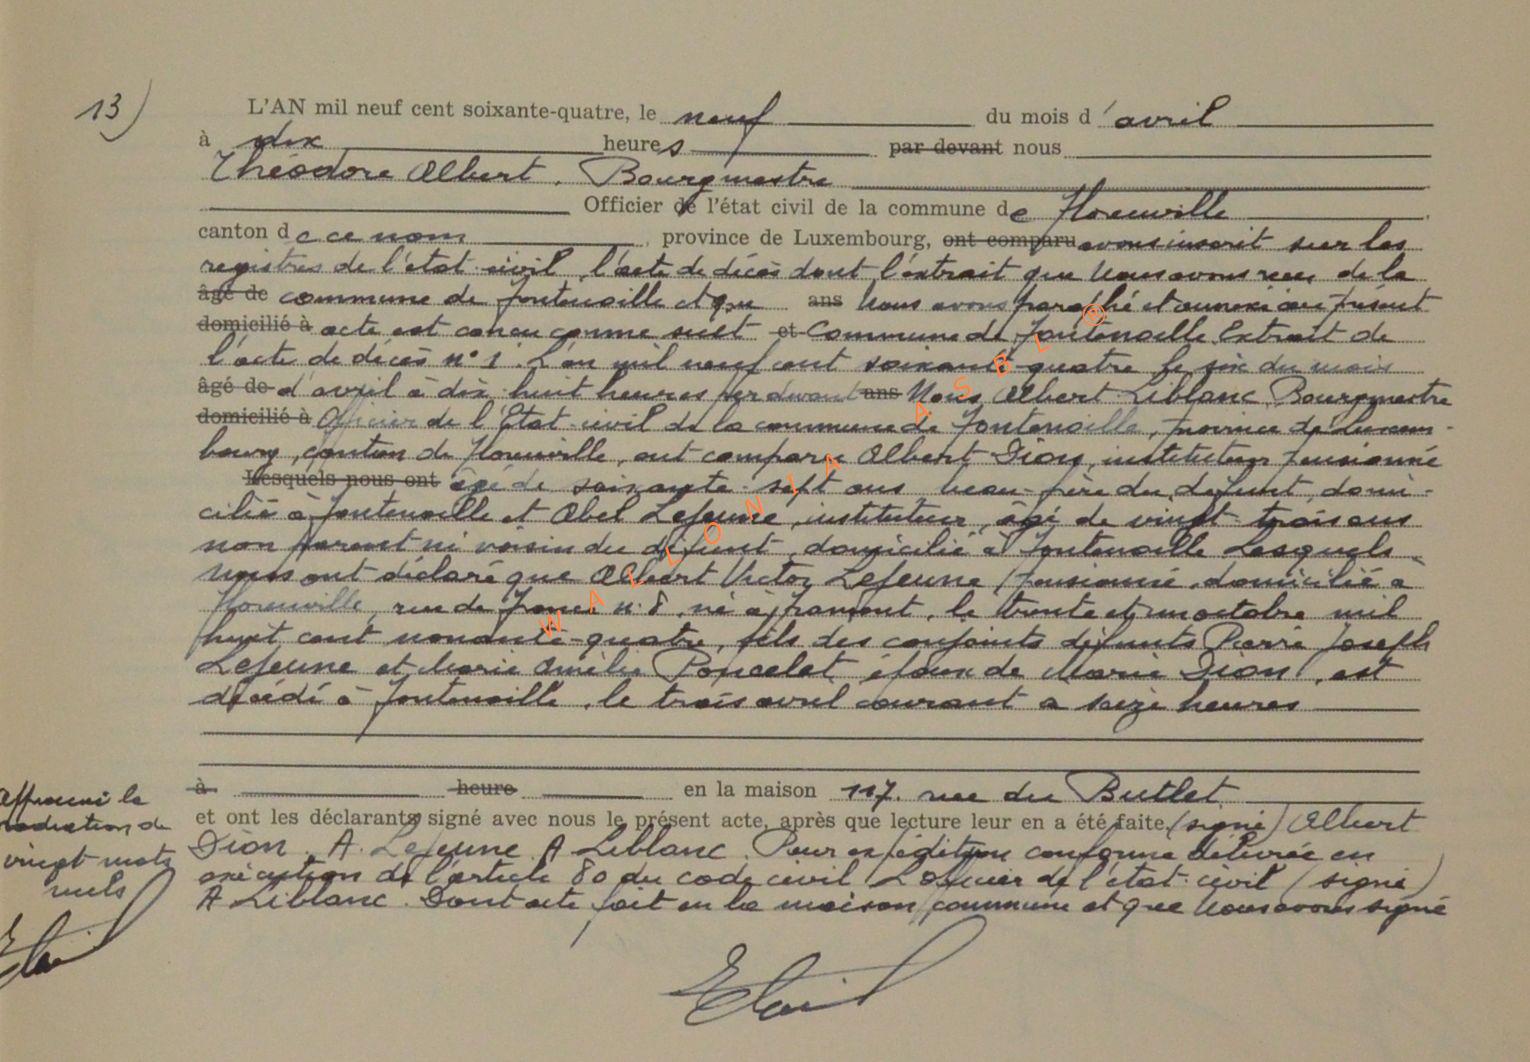 13)
L'AN mil neuf cent soixante-quatre, le neuf du mois d'avril
à dix heures par devant nous
Théodore Albert, Bourgmestre
Officier de l'état civil de la commune de Florenville
canton de ce nom, province de Luxembourg, ont comparu avons inscrit sur les
registres de l'état civil, l'acte de décès dont l'extrait que Nous avons reçu de la
âgé de commune de Fontenoille et que ans Nous avons paraphé et annexé au présent
domicilié à acte est conçu comme suit et Commune de Fontenoille Extrait de
l'acte de décès n° 1. L'an mil neuf cent soixante-quatre le six du mois
âgé de d'avril à dix-huit heures par devant ans Nous Albert Liblanc Bourgmestre
domicilié à Officier de l'Etat-civil de la commune de Fontenoille, province de Luxem-
bourg, canton de Florenville, ont comparu Albert Dion, instituteur pensionné
Lesquels nous ont âgé de soixante-sept ans, beau-frère du défunt, domi-
cilié à Fontenoille et Abel Lejeune, instituteur, âgé de vingt-trois ans
non parent ni voisin du défunt, domicilié à Fontenoille Lesquels
nous ont déclaré que Albert Victor Lejeune, pensionné, domicilié à
Florenville, rue de n° 8, né à Jamont, le trente et un octobre mil
huit cent nonante-quatre, fils des conjoints défunts Pierre Joseph
Lejeune et Marie Amélie Poncelet, époux de Maria Dion, est
décédé à Fontenoille, le trois avril courant à seize heures
à heure en la maison 117. rue du Butlet
et ont les déclarants signé avec nous le présent acte, après que lecture leur en a été faite (signé) Albert
Dion. A. Lejeune. A Liblanc. Pour expédition conforme délivrée en
exécution de l'article 80 du code civil L'officier de l'état-civil (signé)
A Liblanc. Dont acte fait en la maison commune et que Nous avons signé
Approuvé la
radiation de
vingt mots
nuls
WALLONIA ASBL ©